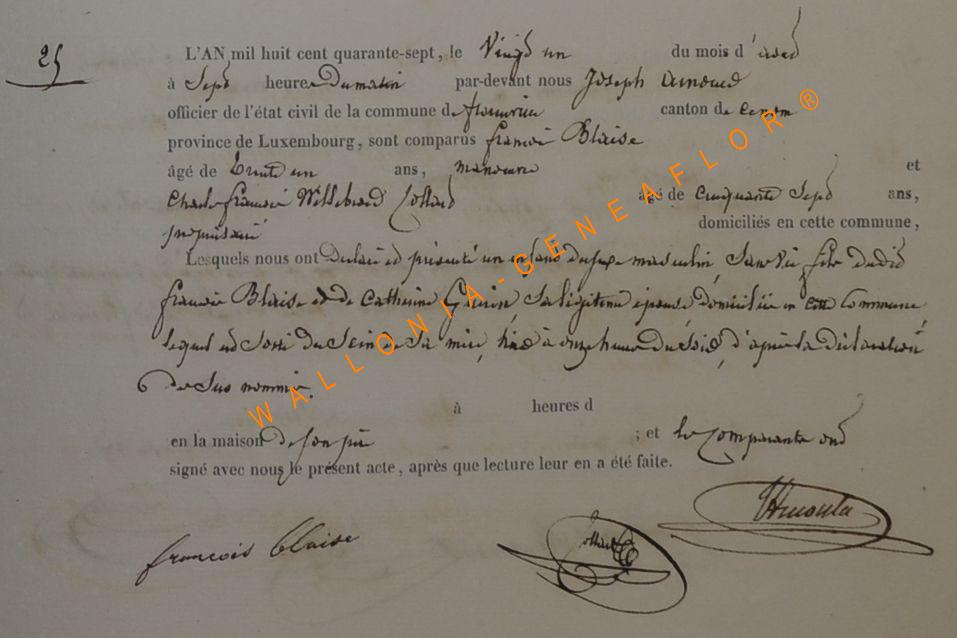 25
L'AN mil huit cent quarante-sept, le Vingt un du mois d'aout
à Sept heures Du matin par-devant nous Joseph Arnould
officier de l'état civil de la commune de canton de
province de Luxembourg, sont comparus francois Blaise
âgé de trente un ans, manoeuvre et
Charle francois Willebrord Collard âgé de Cinquante Sept ans,
proprietaire domiciliés en cette commune,
Lesquels nous ont Declaré et présenté un enfant du sexe masculin, Sans Vie, fils dudit
francois Blaise et de Catherine Sa légitime épouse domiciliée en cette Commune,
lequel est Sorti du Sein de Sa mère, hier à onze heures Du Soir, d'après la déclaration
De Sus nommé.
à heures d
en la maison De Son père ; et les Comparants ont
signé avec nous le présent acte, après que lecture leur en a été faite.
francois blaise Collard
WALLONIA-GENEAFLOR®